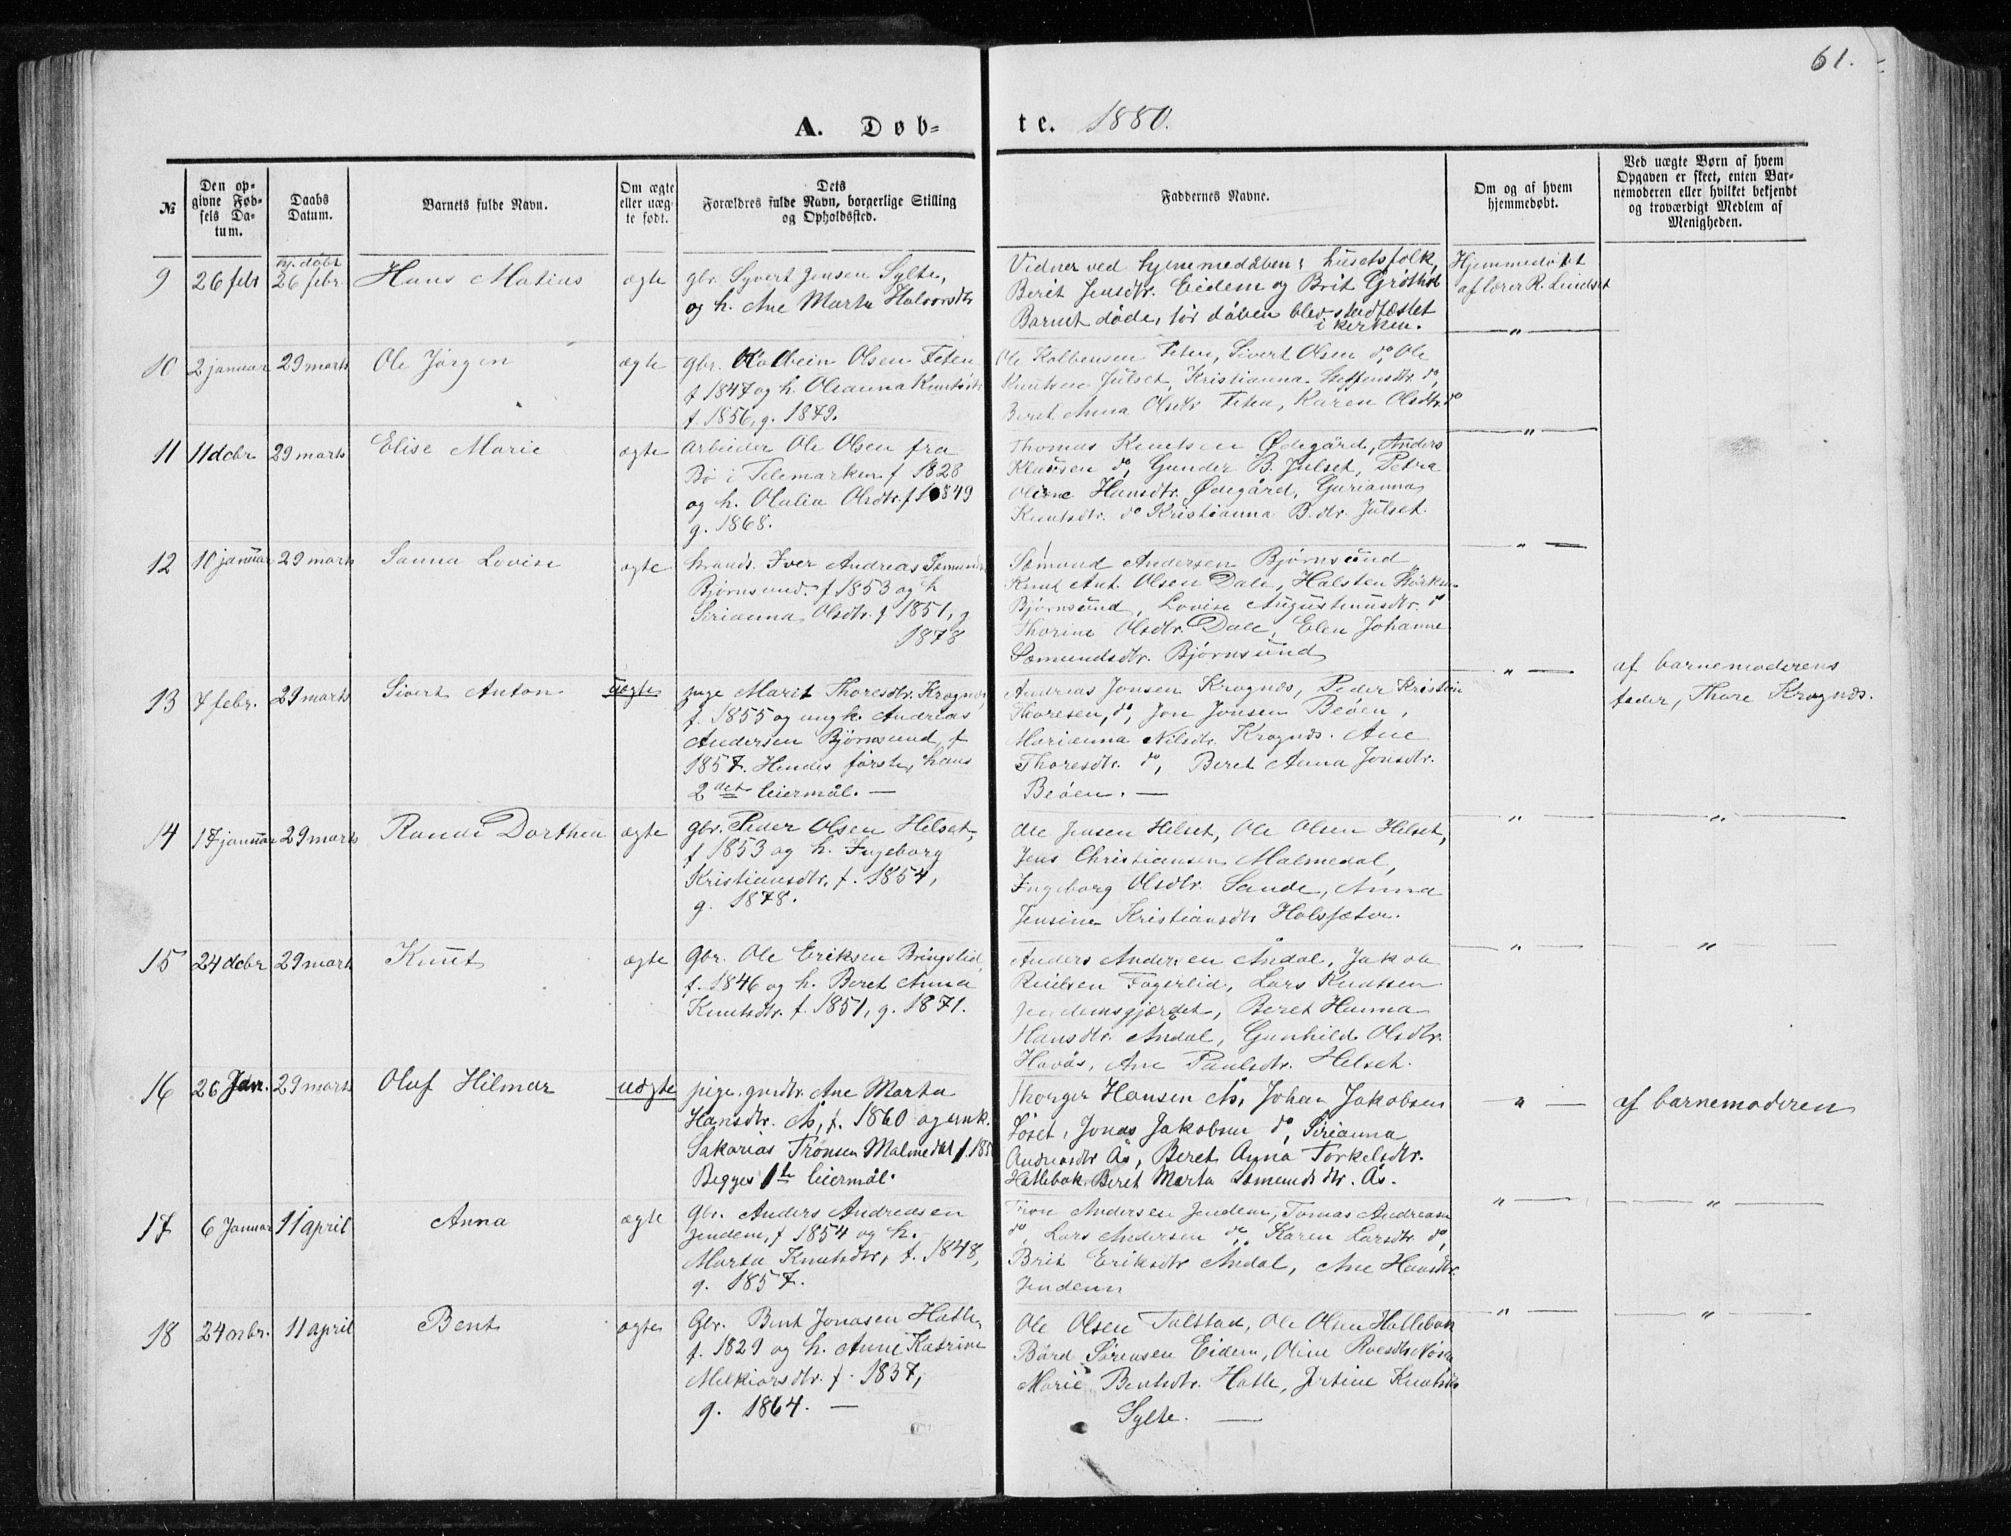 61.
A. Døb-
te. 1880.
№
Den op-
givne Fød-
sels Da-
tum.
Daabs
Datum.
Barnets fulde Navn.
Om ægte
eller uæg-
te født.
Dets
Forældres fulde Navn, borgerlige Stilling
og Opholdssted.
Faddernes Navne.
Om og af hvem
hjemmedøbt.
Ved uægte Børn af hvem
Opgaven er skeet, enten Bar-
nemoderen eller hvilket bekjendt
og troværdigt Medlem af
Menigheden.
9
26 febr
hj. døbt
26 febr
Hans Matias
ægte
gbr. Syvert Jensen Sylte,
og h. Ane Marta Halvorsdtr
Vidner ved hjemmedåben: husetsfolk,
Berit Jensdtr. Eidem og Brit
Barnet døde, før dåben blev stadfæstet
i kirken.
Hjemmedøbt
af lærer R. Lindset
"
10
2 januar
29 marts
Ole Jørgen
ægte
gbr. Kolbein Olsen Teten
f 1847 og h. Oleanna Knutsdtr
f. 1856, g. 1879.
Ole Kolbensen Teten, Sivert Olsen do, Ole
Knutsen Julset, Kristianna Steffensdtr. do,
Beret Anna Olsdtr Teten, Karen Olsdtr. do
"
11
11 dcbr
29 marts
Elise Marie
ægte
arbeider Ole Olsen fra
Bø i Telemarken f 1828
og h. Olalia Olsdtr. f 1849
g. 1868.
Thomas Knutsen Ødegård, Anders
Klausen do, Gunder B. Julset, Petra
Oline Hansdtr. Ødegård, Gurianna
Knutsdtr. do Kristianna B.dtr. Julset.
"
12
10 januar
29 marts
Sanna Lovise
ægte
strands. Iver Andreas Sømunds
Bjørnsund. f 1853 og h
Serianna Olsdtr. f 1851, g
1878
Sømund Andersen Bjørnsund
Knut Ant. Olsen Dale, Halsten
Bjørnsund, Lovise Augustinusdtr. do
Thorine Olsdtr. Dale, Elen Johanne
Sømundsdtr. Bjørnsund
"
13
7 febr.
29 marts
Sivert Anton
uægte
pige Marit Thoresdtr. Krognæs,
f. 1855 og ungk. Andreas
Andersen Bjørnsund, f
1857. Hendes første, hans
2det leiermål. —
Andreas Jonsen Krognæs, Peder Kristin
Thoresen, do, Jon Jonsen Beøen,
Marianna Nilsdtr. Krognæs. Ane
Thoresdtr. do, Beret Anna Jonsdtr.
Beøen. —
af barnemoderens
fader, Thore Krognæs.
14
17 januar
29 marts
Randi Dorthea
ægte
gbr. Peder Olsen Helset,
f 1853 og h. Ingeborg
Kristiansdtr. f. 1854,
g. 1878.
Ole Jensen Helset, Ole Olsen Helset,
Jens Christiansen Malmedal,
Ingeborg Olsdtr. Sande, Anna
Jensine Kristiansdtr Holsjøter.
"
"
15
24 dcbr
29 marts
Knut
ægte
Gbr. Ole Eriksen Bringslid,
f. 1846 og h. Beret Anna
Knutsdtr. f. 1851, g. 1871.
Anders Andersen Åndal, Jakob
Fagerlid, Lars Knutsen
Jendemsgjerdet, Beret Hanna
Hansdtr. Åndal, Gunhild Olsdtr.
Havås, Ane Paulsdtr. Helset.
"
"
16
26 Jan.
29 marts
Oluf Hilmar
uægte
pige, grdtr. Ane Marta
Hansdtr. Ås, f. 1860 og unk.
Sakarias Trønsen Malmedal f. 185
Begges 1te leiermål.
Thorger Hansen Ås, Johan Jakobsen
Løset, Jonas Jakobsen do, Serianna
Andreasdtr Ås, Beret Anna Torkelsdtr.
Hatlebak, Beret Marta Sømundsdtr. Ås.
"
af barnemoderen
17
6 Januar
11 april
Anna
ægte
Gbr. Anders Andreasen
Jendem, f 1854 og h.
Marta Knutsdtr, f. 1848,
g. 1857.
Tron Andersen Jendem, Tomas Andreasen
do, Lars Andersen do, Karen Larsdtr do,
Brit Eriksdtr Åndal, Ane Hansdtr.
Jendem
"
"
18
24 nvbr.
11 april
Bent
ægte
Gbr. Bent Jonasen Hatle,
f. 1829 og h. Anne Katrine
Melkiorsdtr. f. 1837,
g. 1864. —
Ole Olsen Talstad, Ole Olsen Hatlebak
Bård Sørensen Eidem, Oline
Marie Bentsdtr. Hatle, Jertine Knutsdtr
Sylte. —
"
"